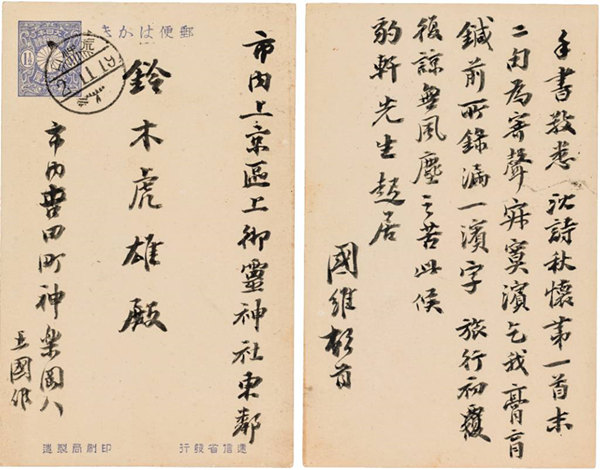 郵便はかき
1½
市内上京區上御靈神社東鄰
鈴木虎雄殿
市内吉田町神樂岡八
王國維
遞信省發行
印刷局製造
手書敬悉 沈詩秋懷第一首末
二句為寄聲寂寞濱乞我膏肓
鍼前所錄漏一濱字 旅行初
後諒無風塵之苦此候
豹軒先生起居
國維頓首